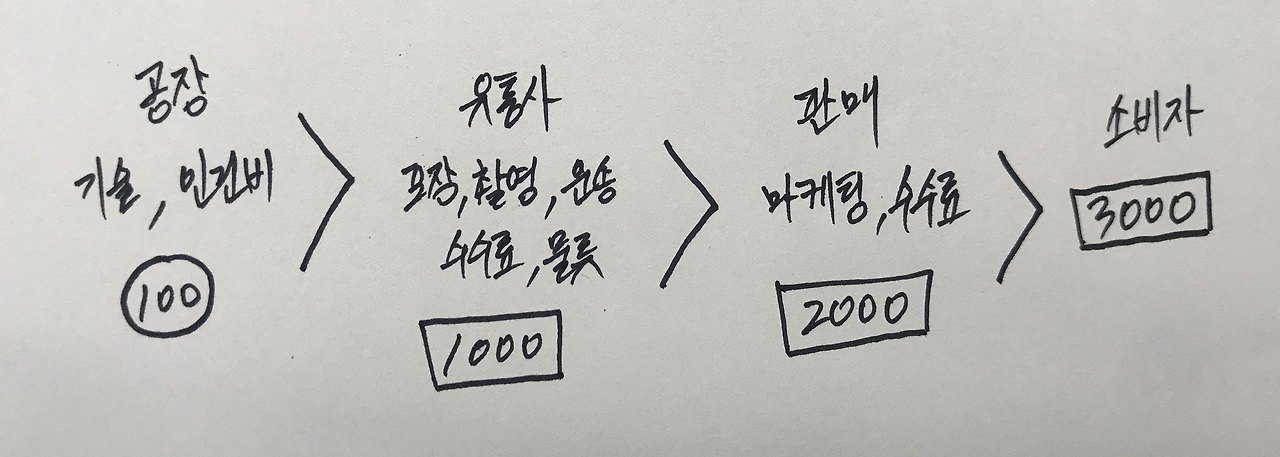 공장
기술, 인건비
100
유통사
포장, 촬영, 운송
수수료, 물류
1000
판매
마케팅, 수수료
2000
소비자
3000